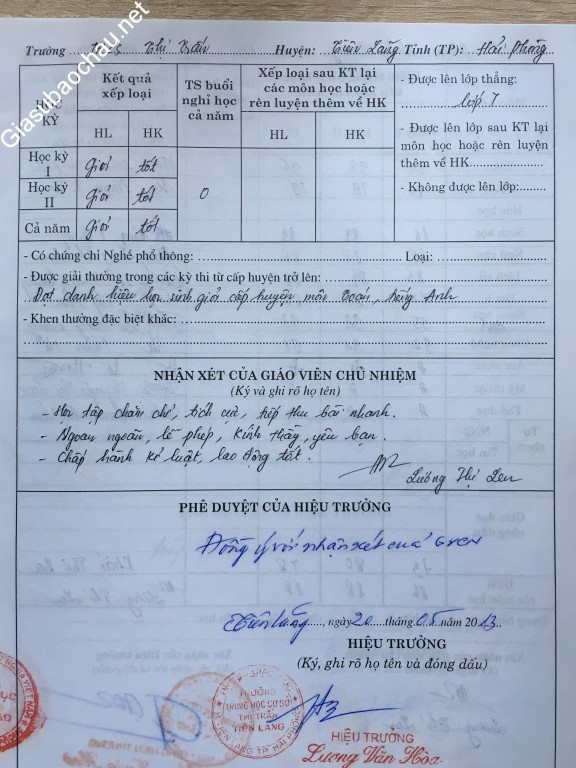 Giasubaochau.net
Trường THCS Thị Trấn Huyện: Tiên Lãng Tỉnh (TP): Hải Phòng
HỌC KỲ
Kết quả xếp loại
TS buổi nghỉ học cả năm
Xếp loại sau KT lại các môn học hoặc rèn luyện thêm về HK
HL HK HL HK
- Được lên lớp thẳng:
lớp 7
- Được lên lớp sau KT lại
môn học hoặc rèn luyện
thêm về HK
- Không được lên lớp:
Học kỳ I giỏi tốt
Học kỳ II giỏi tốt 0
Cả năm giỏi tốt
- Có chứng chỉ Nghề phổ thông: Loại:
- Được giải thưởng trong các kỳ thi từ cấp huyện trở lên:
Đạt danh hiệu học sinh giỏi cấp huyện môn Toán, tiếng Anh
- Khen thưởng đặc biệt khác:
NHẬN XÉT CỦA GIÁO VIÊN CHỦ NHIỆM
(Ký và ghi rõ họ tên)
- Học tập chăm chỉ, tích cực, tiếp thu bài nhanh.
- Ngoan ngoãn, lễ phép, kính thầy, yêu bạn.
- Chấp hành kỉ luật, lao động tốt.
Lương Thị Len
PHÊ DUYỆT CỦA HIỆU TRƯỞNG
Đồng ý với nhận xét của GVCN
Tiên Lãng, ngày 20 tháng 05 năm 2013
HIỆU TRƯỞNG
(Ký, ghi rõ họ tên và đóng dấu)
TRƯỜNG
TRUNG HỌC CƠ SỞ
THỊ TRẤN
TIÊN LÃNG
HIỆU TRƯỞNG
Lương Văn Hòa